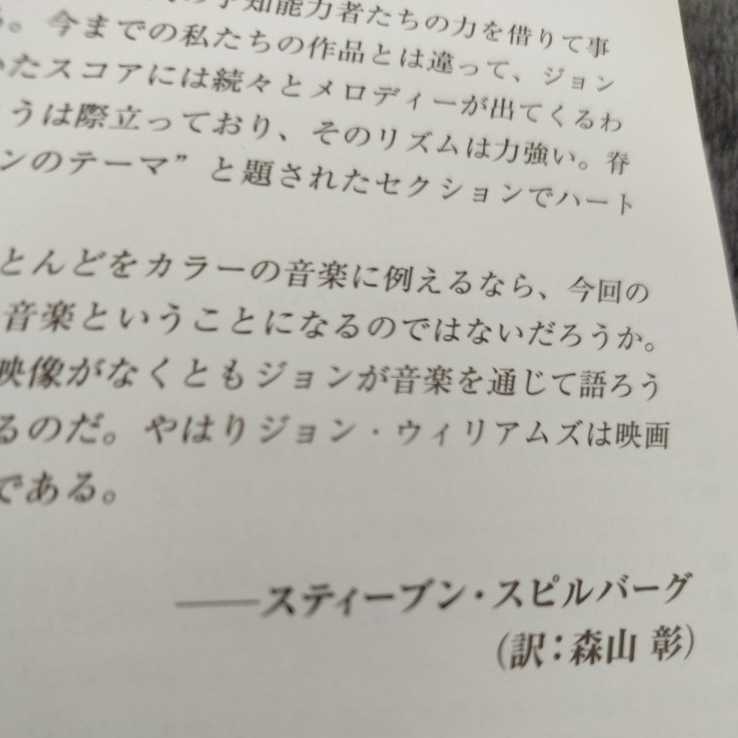 予知能力者たちの力を借りて事
。今までの私たちの作品とは違って、ジョン
いたスコアには続々とメロディーが出てくるわ
うは際立っており、そのリズムは力強い。脊
ンのテーマ”と題されたセクションでハート
とんどをカラーの音楽に例えるなら、今回の
音楽ということになるのではないだろうか。
映像がなくともジョンが音楽を通じて語ろう
るのだ。やはりジョン・ウィリアムズは映画
である。
――スティーブン・スピルバーグ
(訳：森山 彰)